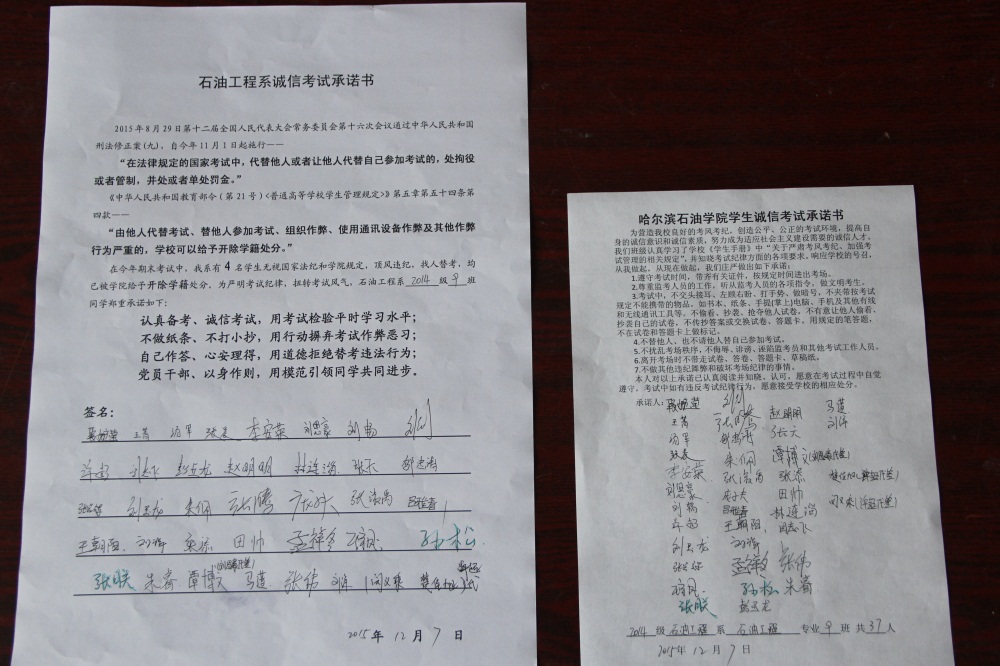 石油工程系诚信考试承诺书
2015年8月29日第十二届全国人民代表大会常务委员会第十六次会议通过中华人民共和国
刑法修正案(九)，自今年11月1日起施行——
“在法律规定的国家考试中，代替他人或者让他人代替自己参加考试的，处拘役
或者管制，并处或者单处罚金。”
《中华人民共和国教育部令（第21号）<普通高等学校学生管理规定>》第五章第五十四条第
四款——
“由他人代替考试、替他人参加考试、组织作弊、使用通讯设备作弊及其他作弊
行为严重的，学校可以给予开除学籍处分。”
在今年期末考试中，我系有4名学生无视国家法纪和学院规定，顶风违纪，找人替考，均
已被学院给予开除学籍处分，为严明考试纪律，扭转考试风气，石油工程系2014级9班
同学郑重承诺如下：
认真备考、诚信考试，用考试检验平时学习水平；
不做纸条、不打小抄，用行动摒弃考试作弊恶习；
自己作答、心安理得，用道德拒绝替考违法行为；
党员干部、以身作则，用模范引领同学共同进步。
签名：
李安荣 刘思豪 刘畅
赵明明 林连海
张腾
王朝阳 田帅 孙松
张朕 朱睿 谭博文 马莲 张伟
2015年12月7日
哈尔滨石油学院学生诚信考试承诺书
为营造我校良好的考风考纪，创造公平、公正的考试环境，提高自
身的诚信意识和诚信素质，努力成为适应社会主义建设需要的诚信人才，
我们班级认真学习了学校《学生手册》中“关于严肃考风考纪、加强考
试管理的相关规定”，并知晓考试纪律方面的各项要求，响应学校的号召，
从我做起，从现在做起，我们庄严做出如下承诺：
1.遵守考试时间，带齐有关证件，按规定时间进出考场。
2.尊重监考人员的工作，听从监考人员的各项指令，做文明考生。
3.考试中，不交头接耳、左顾右盼、打手势、做暗号，不夹带按考试
规定不能携带的物品，如书本、纸条、手提(掌上)电脑、手机及其他有线
和无线通讯工具等，不偷看、抄袭、抢夺他人试卷，不有意让他人偷看、
抄袭自己的试卷，不传抄答案或交换试卷、答题卡，用规定的笔答题，
不在试卷和答题卡上做标记。
4.不替他人、也不请他人替自己参加考试。
5.不扰乱考场秩序，不侮辱、诽谤、诬陷监考员和其他考试工作人员。
6.离开考场时不带走试卷、答卷、答题卡、草稿纸。
7.不做其他违纪舞弊和破坏考场纪律的事情。
本人对以上承诺已认真阅读并知晓、认可，愿意在考试过程中自觉
遵守，考试中如有违反考试纪律行为，愿意接受学校的相应处分。
承诺人： 马莲
赵明明
谭博文
李安荣
刘思豪 田帅
王朝阳 林连海
张伟
孙松 朱睿
张朕
2014级石油工程系石油工程专业9班共37人
2015年12月7日